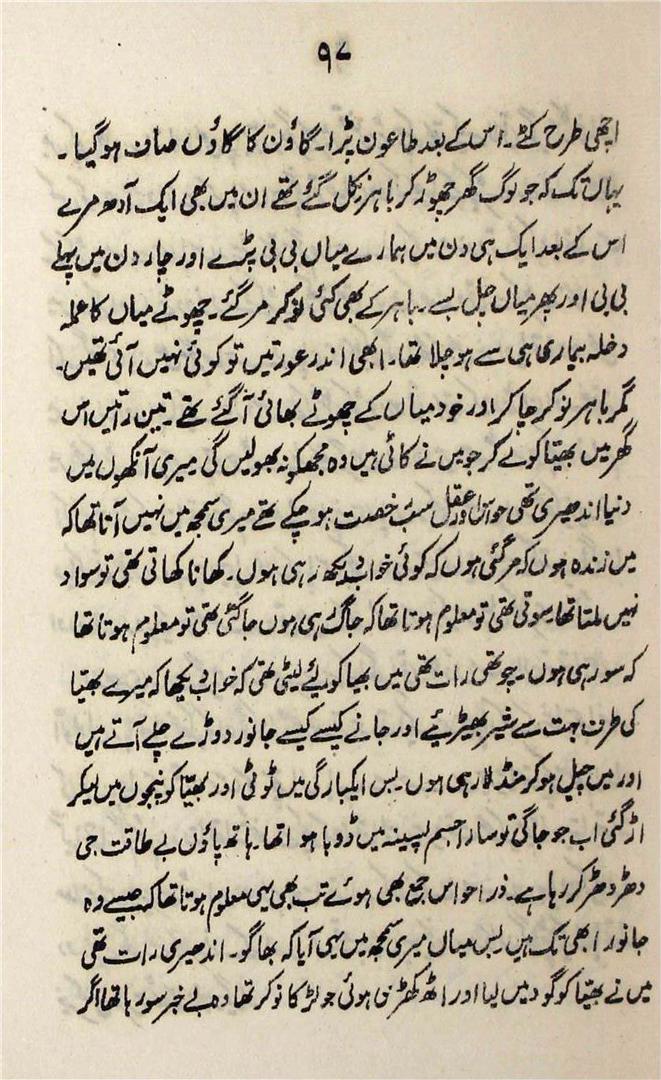 ۹۷
اچھی طرح کٹے۔ اس کے بعد طاعون پڑا۔ گاؤن کا گاؤں صاف ہو گیا۔
یہاں تک کہ جو لوگ گھر چھوڑ کر باہر نکل گئے تھے ان میں بھی ایک آدھ مرے
اس کے بعد ایک ہی دن میں ہمارے میاں بی بی پڑے اور چار دن میں پہلے
بی بی اور پھر میاں چل بسے۔ باہر کے بھی کئی نوکر مر گئے۔ چھوٹے میاں کا عملہ
دخلہ بیماری ہی سے ہو چلا تھا۔ ابھی اندر عورتیں تو کوئی نہیں آئی تھیں۔
مگر باہر نوکر چاکر اور خود میاں کے چھوٹے بھائی آ گئے تھے۔ تین راتیں اس
گھر میں بھیتا کو لے کر جو میں نے کاٹی ہیں وہ مجھکو نہ بھولیں گی میری آنکھوں میں
دنیا اندھیری تھی حواس اور عقل سب رخصت ہو چکے تھے میری سمجھ میں نہیں آتا تھا کہ
میں زندہ ہوں کہ مر گئی ہوں کہ کوئی خواب دیکھ رہی ہوں۔ کھانا کھاتی تھی تو سواد
نہیں ملتا تھا۔ سوتی تھی تو معلوم ہوتا تھا کہ جاگ رہی ہوں جاگتی تھی تو معلوم ہوتا تھا
کہ سو رہی ہوں۔ چوتھی رات تھی میں بھیا کو لئے لیٹی تھی کہ خواب دیکھا کہ میرے بھیتا
کی طرف بہت سے شیر بھیڑیئے اور جانے کیسے کیسے جانور دوڑے چلے آتے ہیں
اور میں چیل ہو کر منڈلا رہی ہوں۔ بس ایکبارگی میں ٹوٹی اور بھیتا کو پنجوں میں لیکر
اڑ گئی اب جو جاگی تو سارا جسم پسینہ میں ڈوبا ہوا تھا۔ ہاتھ پاؤں بے طاقت جی
دھڑ دھڑ کر رہا ہے۔ ذرا حواس جمع بھی ہوئے تب بھی یہی معلوم ہوتا تھا کہ جیسے وہ
جانور ابھی تک ہیں بس میاں میری سمجھ میں یہی آیا کہ بھاگو۔ اندھیری رات تھی
میں نے بھیتا کو گود میں لیا اور اٹھ کھڑی ہوئی جو لڑکا نوکر تھا وہ بے خبر سو رہا تھا اگر